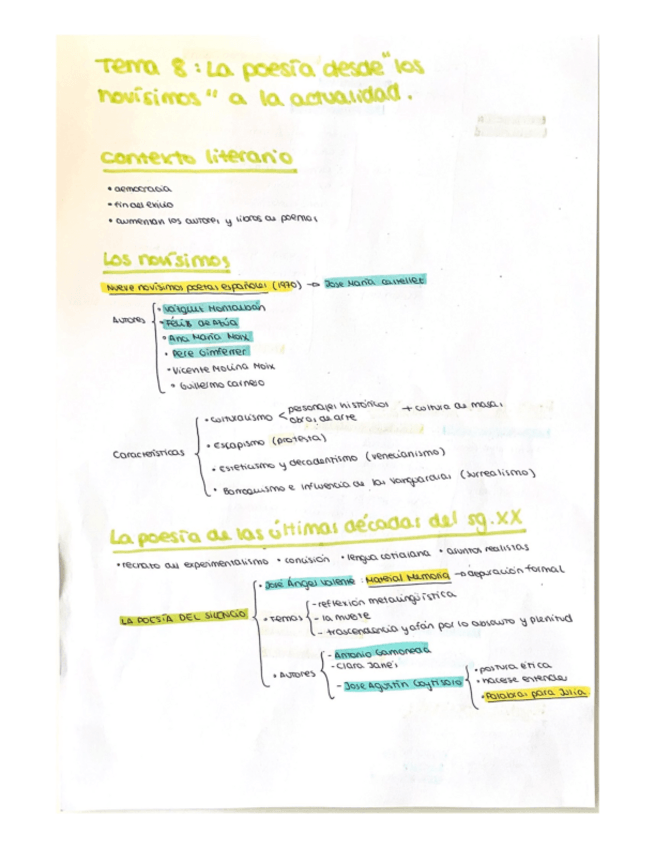 Tema 8: La poesía desde "los
novísimos" a la actualidad.
Contexto literario
• democracia
• fin del exilio
• aumentan los autores y libros de poemas
Los novísimos
Nueve novísimos poetas españoles (1970) → Jose María Castellet
Autores
• Vázquez Montalbán
• Félix de Azúa
• Ana María Moix
• Pere Gimferrer
• Vicente Molina Foix
• Guillermo Carnero
Características
• culturalismo < personajes históricos + cultura de masas
obras de arte
• escapismo (protesta)
• esteticismo y decadentismo (venecianismo)
• Barroquismo e influencia de las vanguardias (surrealismo)
La poesía de las últimas décadas del sg. XX
• rechazo del experimentalismo • concisión • lengua cotidiana • asuntos realistas
LA POESÍA DEL SILENCIO
• José Ángel Valente: Material Memoria → depuración formal
• Temas
- reflexión metalingüística
- la muerte
- trascendencia y afán por lo absoluto y plenitud
• Autores
- Antonio Gamoneda
- Clara Janés
- Jose Agustín Goytisolo
• postura ética
• hacerse entender
• Palabras para Julia